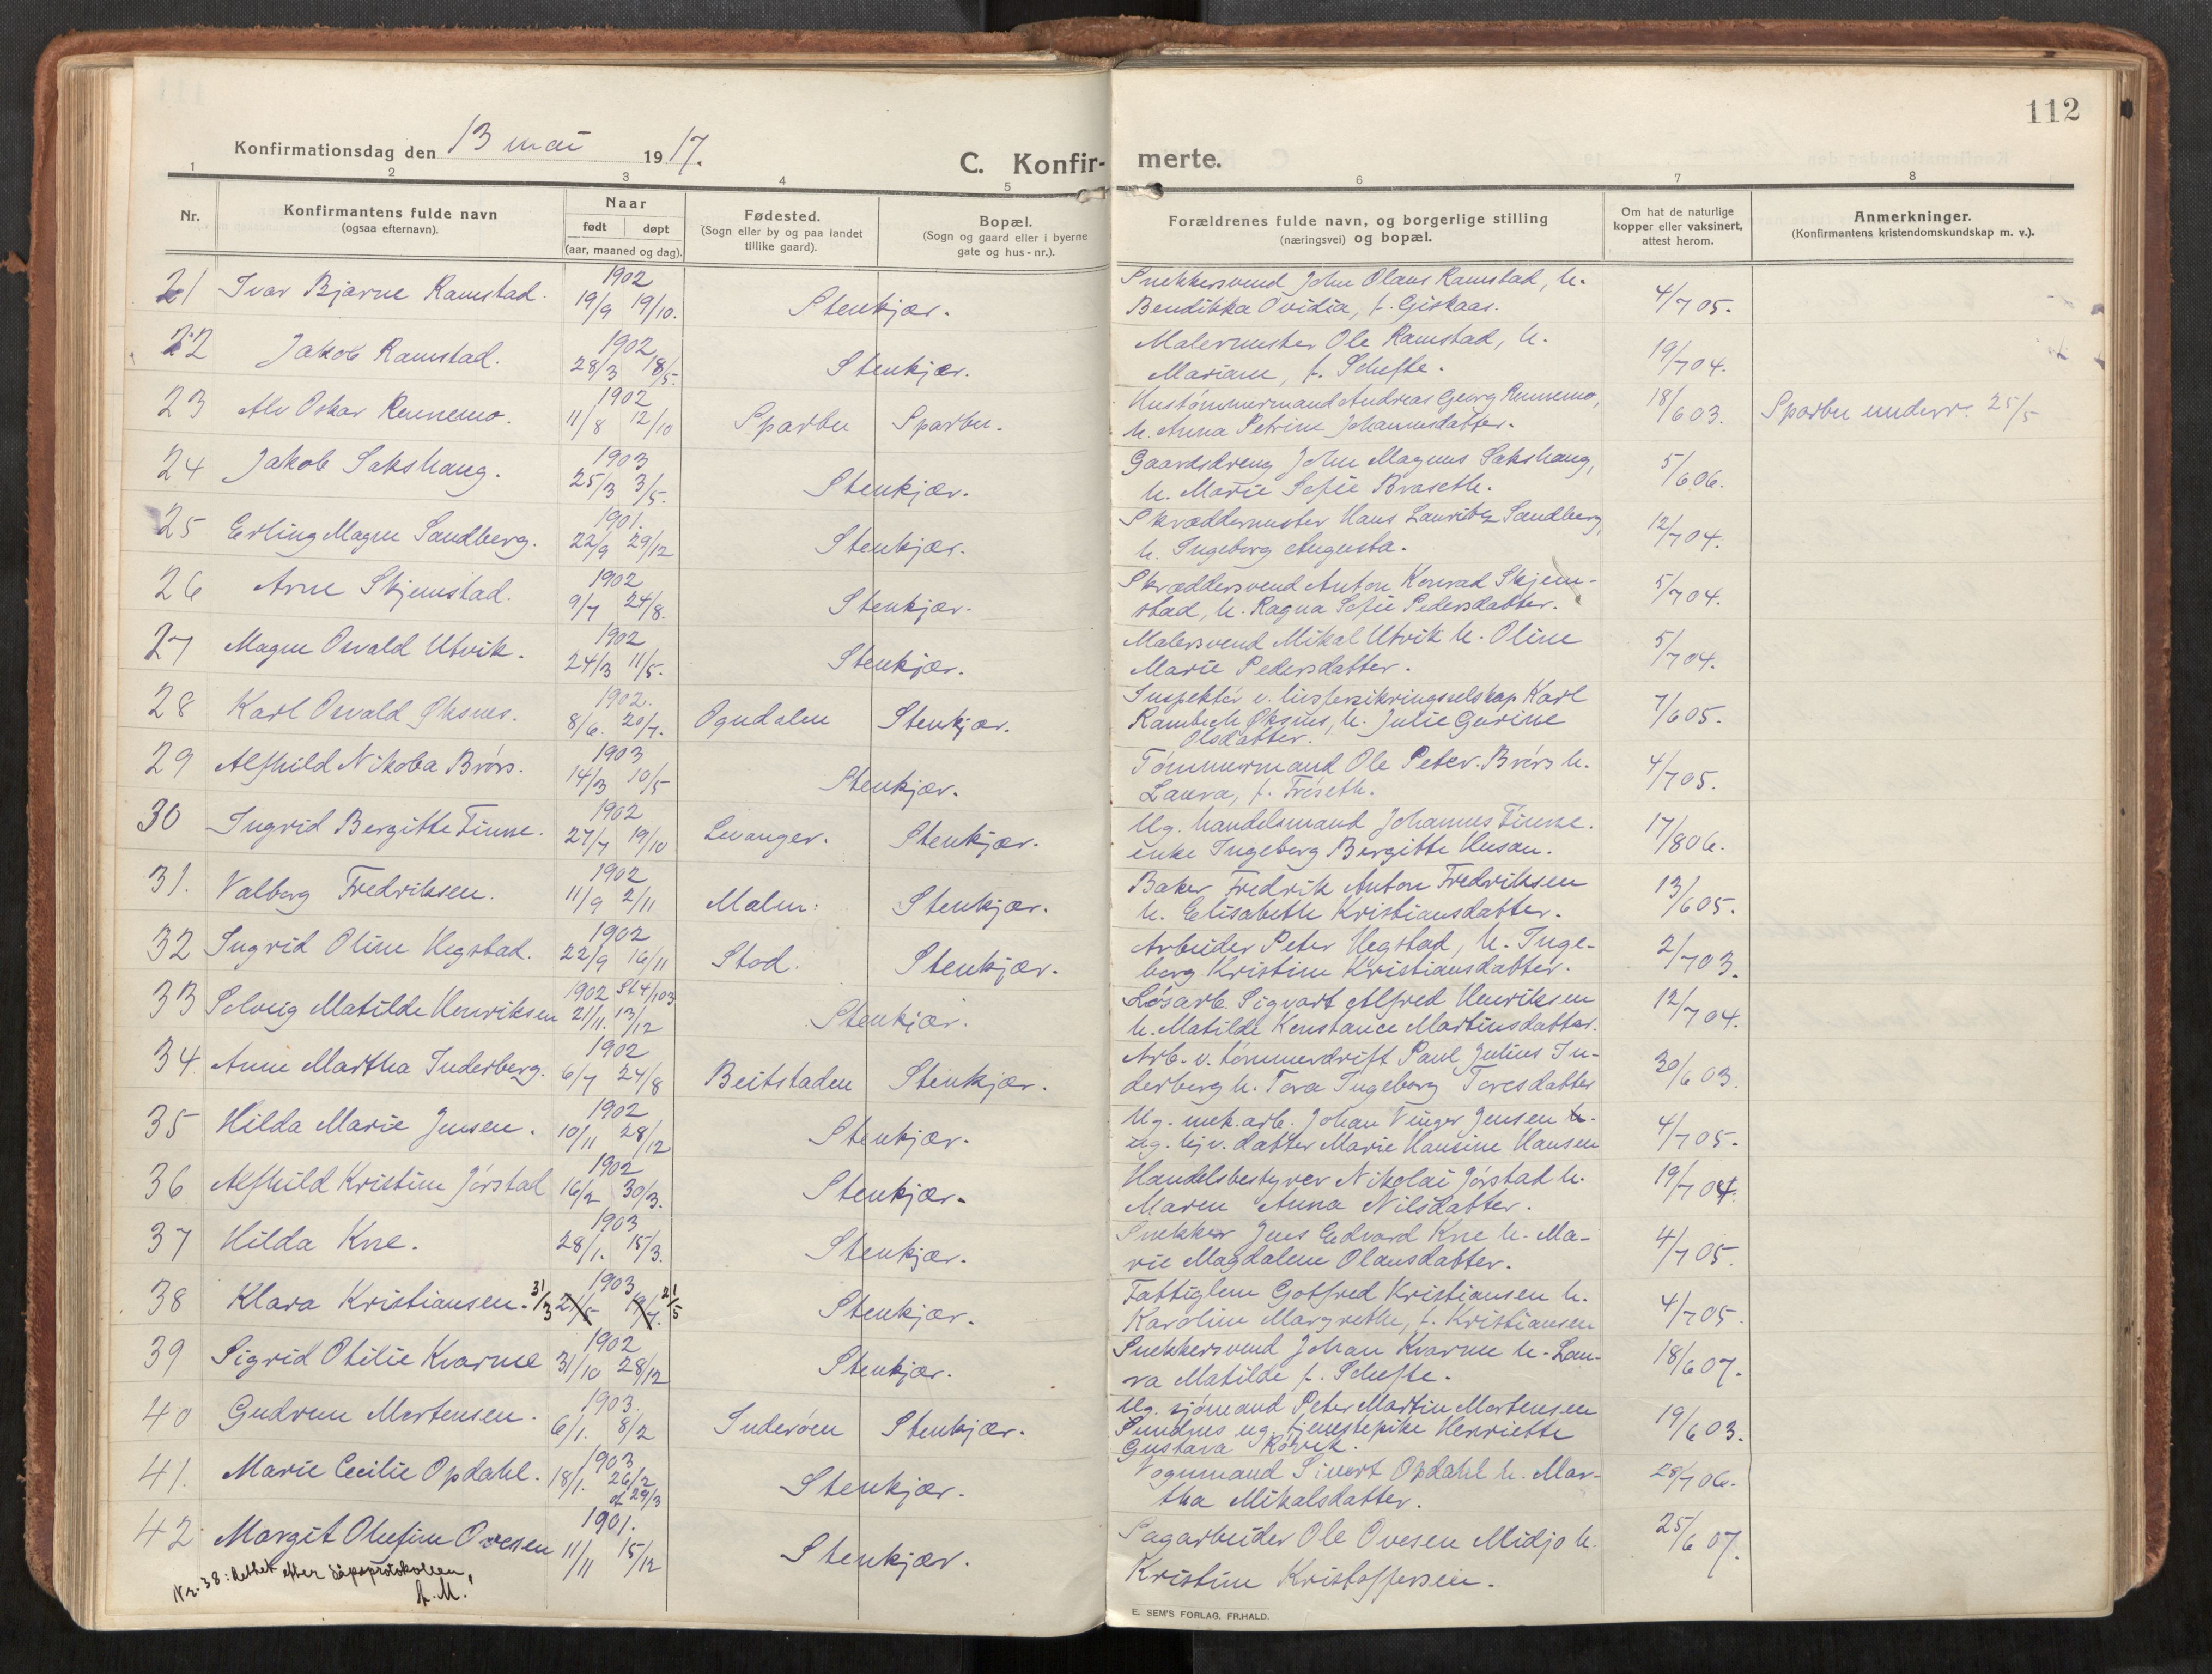 112
Konfirmationsdag den 13 mai 1917.
C. Konfirmerte.
1 2 3 4 5 6 7 8
Nr.
Konfirmantens fulde navn
(ogsaa efternavn).
Naar
født døpt
(aar, maaned og dag).
Fødested.
(Sogn eller by og paa landet
tillike gaard).
Bopæl.
(Sogn og gaard eller i byerne
gate og hus-nr.).
Forældrenes fulde navn, og borgerlige stilling
(næringsvei) og bopæl.
Om hat de naturlige
kopper eller vaksinert,
attest herom.
Anmerkninger.
(Konfirmantens kristendomskundskap m. v.).
21 Ivar Bjarne Ramstad. 1902 19/9 19/10. Stenkjær. Snekkersvend John Olaus Ramstad, h. 4/7 05.
Bendikka Ovidia, f. Giskaas.
22 Jakob Ramstad. 1902 28/3 18/5. Stenkjær. Malermester Ole Ramstad, h. 19/7 04.
Mariane, f. Schefte.
23 Alv Oskar Rennemo. 1902 11/8 12/10 Sparbu Sparbu. Hustømmermand Andreas Georg Rennemo, 18/6 03. Sparbu underr. 25/5
h. Anna Petrine Johannesdatter.
24 Jakob Sakshaug. 1903 25/3 3/5. Stenkjær. Gaardsdreng John Magnus Sakshaug, 5/6 06.
h. Marie Sofie Braseth.
25 Erling Magne Sandberg. 1901. 22/9 29/12 Stenkjær. Skræddermester Hans Lauritz Sandberg, 12/7 04.
h. Ingeborg Augusta.
26 Arne Skjemstad. 1902 9/7 24/8. Stenkjær. Skræddersvend Anton Konrad Skjem- 5/7 04.
stad, h. Ragna Sofie Pedersdatter.
27 Magne Osvald Utvik. 1902 24/3 11/5. Stenkjær. Malersvend Mikal Utvik h. Oline 5/7 04.
Marie Pedersdatter.
28 Karl Osvald Øksnes. 1902. 8/6. 20/7. Ogndalen Stenkjær. Inspektør v. livsforsikringsselskap Karl 7/6 05.
Rambech Øksnes, h. Julie Gurine
Olsdatter.
29 Alfhild Nikoba Brørs. 1903 14/3 10/5 Stenkjær. Tømmermand Ole Peter Brørs h. 4/7 05.
Laura, f. Frøseth.
30 Ingrid Bergitte Finne. 1902 27/7 19/10 Levanger. Stenkjær. Ug. handelsmand Johannes Finne. 17/8 06.
enke Ingeborg Bergitte Husan.
31. Valborg Fredriksen. 1902 11/9 2/11 Malm: Stenkjær. Baker Fredrik Anton Fredriksen 13/6 05.
h. Elisabeth Kristiansdatter.
32 Ingrid Oline Hegstad. 1902 22/9 16/11 Stod. Stenkjær. Arbeider Peter Hegstad, h. Inge- 2/7 03.
borg Kristine Kristiansdatter.
33 Solveig Matilde Henriksen 1902 St 4/1 03 21/11. 13/12 Stenkjær. Løsarb. Sigvart Alfred Henriksen 12/7 04.
h. Matilde Konstance Martinsdatter.
34 Anne Martha Inderberg. 1902 6/7 24/8 Beitstaden Stenkjær. Arb. v. tømmerdrift Paul Julius In- 30/6 03.
derberg h. Tora Ingeborg Toresdatter
35 Hilda Marie Jensen. 1902 10/11 28/12 Stenkjær. Ug. mek. arb. Johan Vinger Jensen h. 4/7 05.
ug. hjv. datter Marie Hansine Hansen
36 Alfhild Kristine Jørstad 1902 16/2 30/3. Stenkjær. Handelsbestyrer Nikolai Jørstad h. 19/7 04.
Maren Anna Nilsdatter.
37 Hilda Kne. 1903 28/1. 15/3. Stenkjær. Snekker Jens Edvard Kne h. Ma- 4/7 05.
rie Magdalene Olausdatter.
38 Klara Kristiansen. 31/3 1903 21/5 19/7. 21/5 Stenkjær. Fattiglem Gotfred Kristiansen h. 4/7 05.
Karoline Margrethe, f. Kristiansen
39 Sigrid Otilie Kvarme 1902 31/10 28/12 Stenkjær. Snekkersvend Johan Kvarme h. Lau- 18/6 07.
ra Matilde f. Schefte.
40 Gudrun Mortensen. 1903. 6/1. 8/2 Inderøen Stenkjær. Ug. sjømand Peter Martin Mortensen 19/6 03.
Sundnes ug. tjenestepike Henriette
Gustava Køvik.
41. Marie Cecilie Opdahl. 1903 18/1. 26/2 st 29/3 Stenkjær. Vognmand Sivert Opdahl h. Mar- 28/7 06.
tha Mikalsdatter.
42. Margit Olufine Ovesen 1901. 11/11 15/12 Stenkjær. Sagarbeider Ole Ovesen Midjo h. 25/6 07.
Kristine Kristoffersen.
Nr. 38: Rettet efter dåpsprotokollen,
A.M.
E. SEM'S FORLAG, FR.HALD.